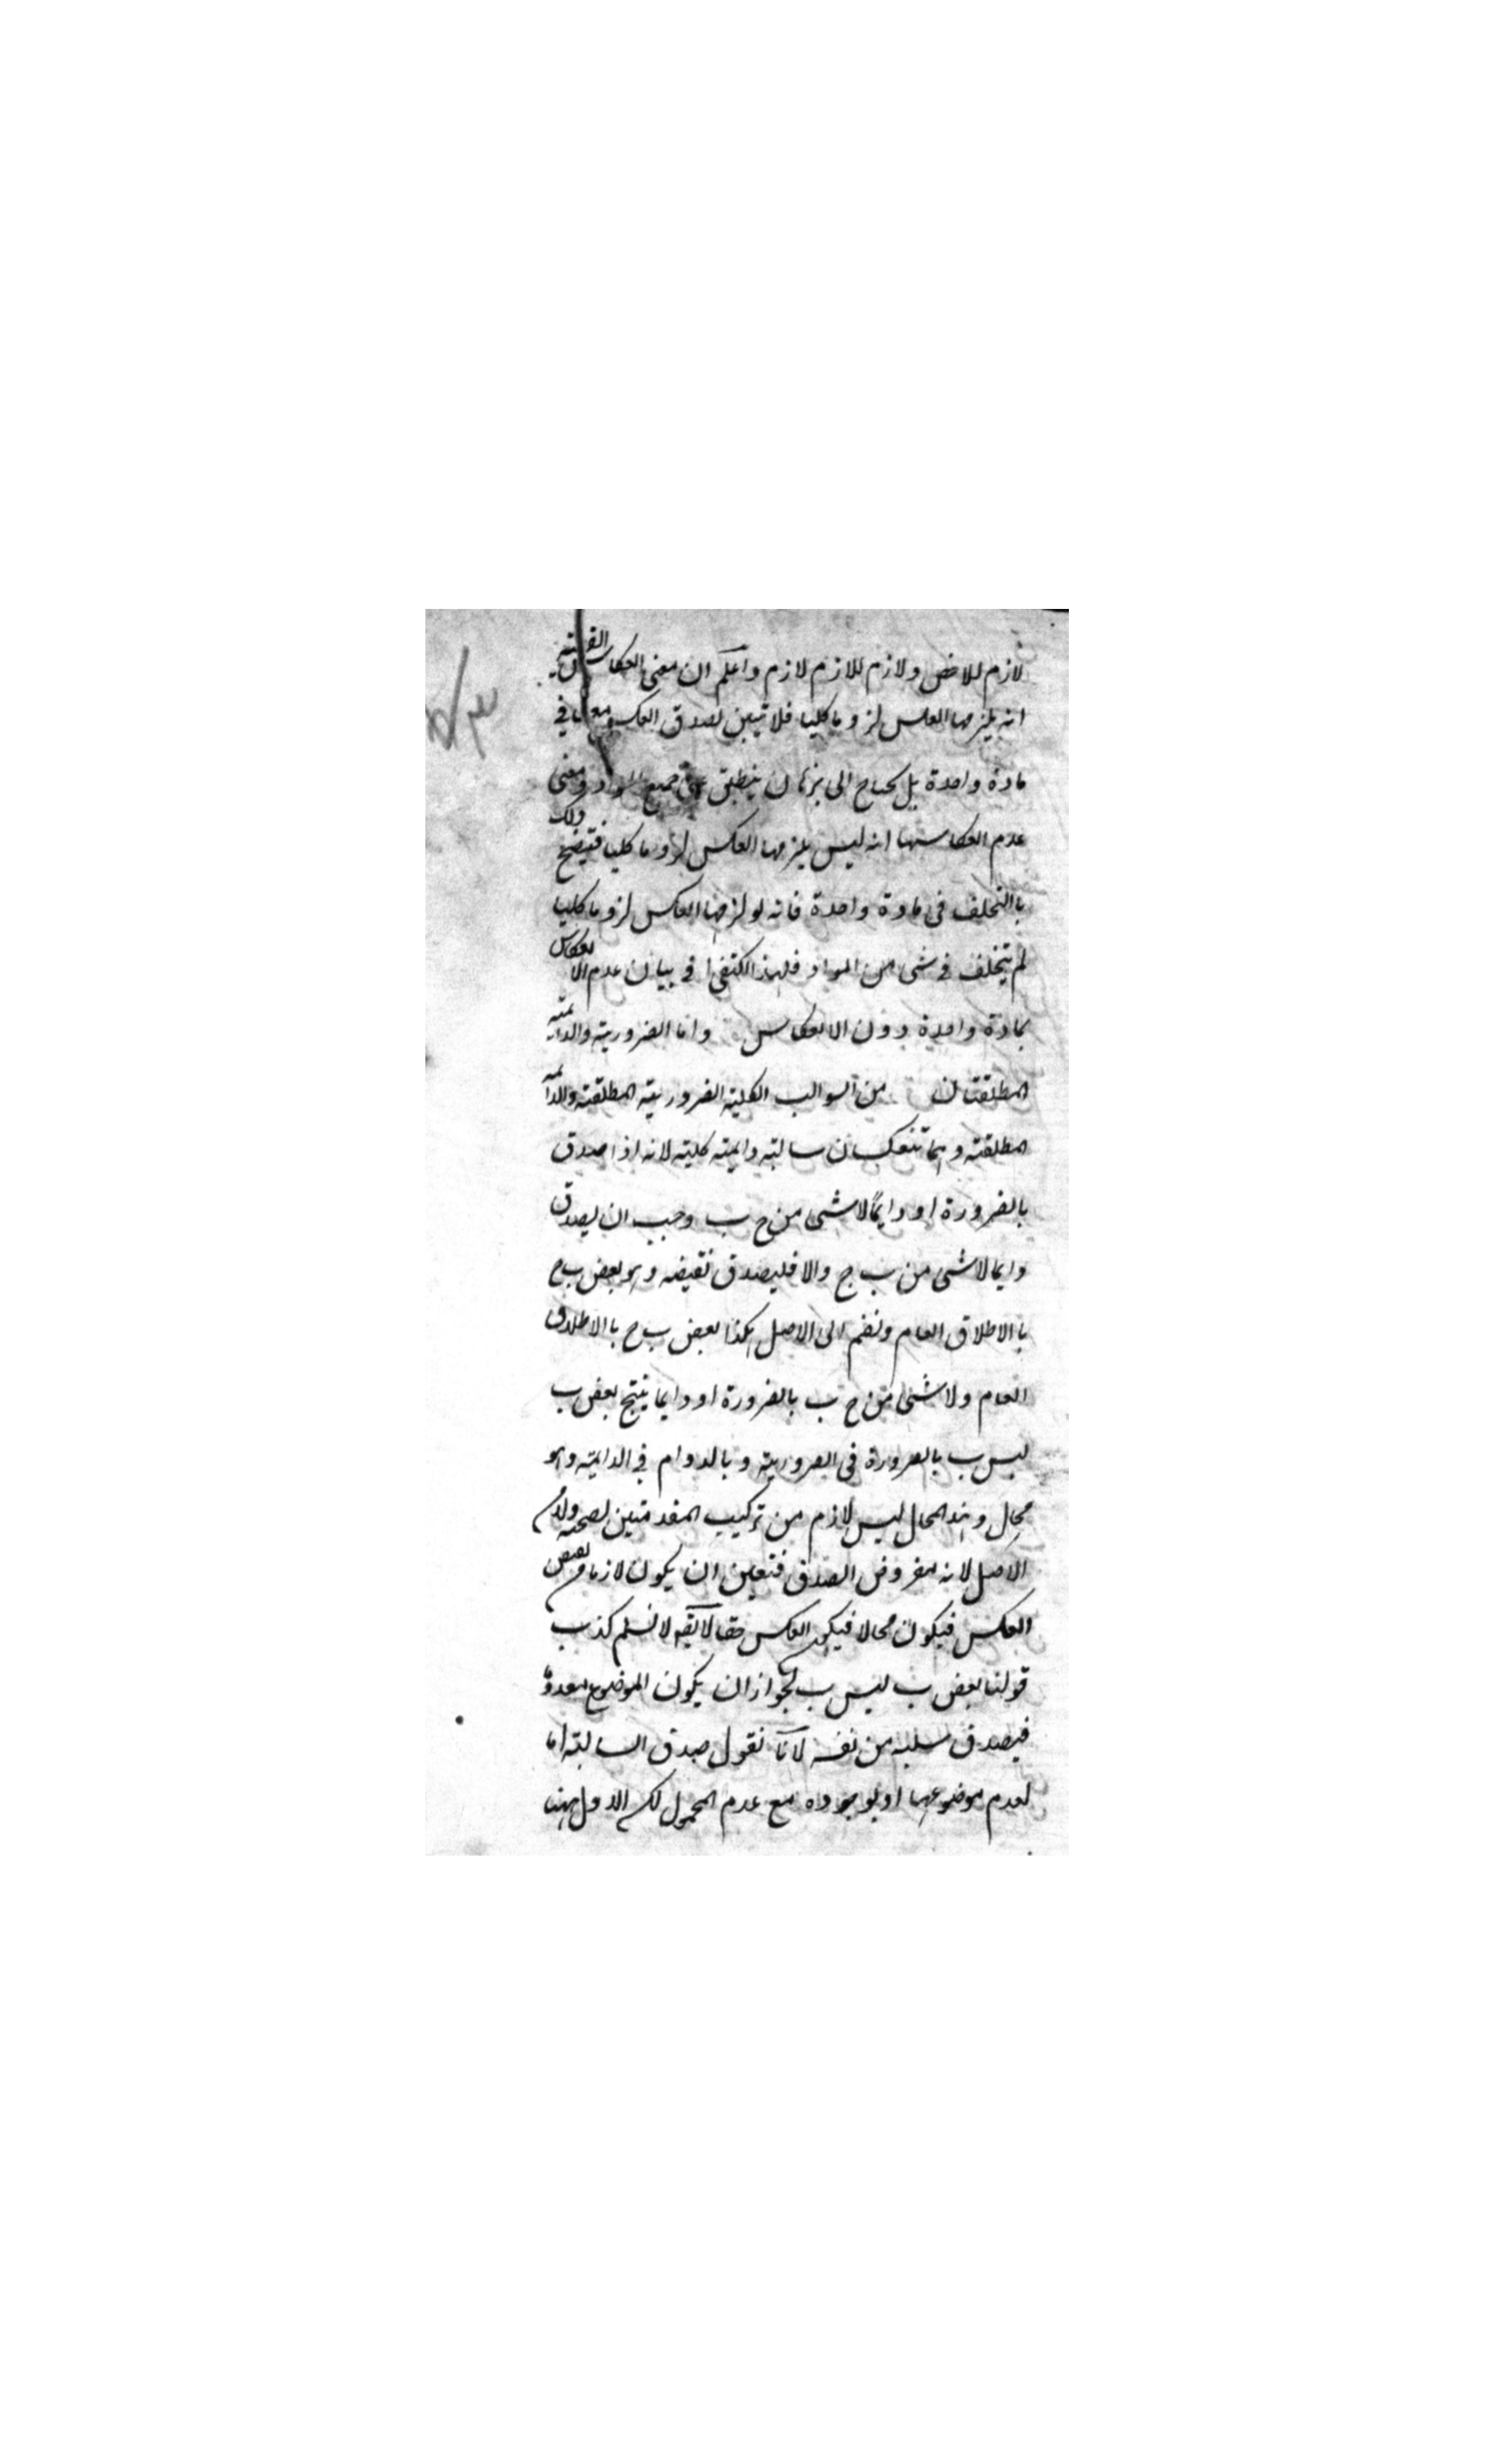 لازم للاخص ولازم للازم لازم واعلم ان معنى انعكاس القضية
انه يلزمها العكس لزوما كليا فلا يتبين بصدق العكس معها في
مادة واحدة بل يحتاج الى برهان ينطبق على جميع المواد ومعنى
عدم انعكاسها انه ليس يلزمها العكس لزوما كليا فيتضح ذلك
باالتخلف فى مادة واحدة فانه لو لزمها العكس لزوما كليا
لم يتخلف فى شى من المواد فلهذا اكتفى ا فى بيان عدم الانعكاس
بمادة واحدة دون الانعكاس واما الضرورية والدائمة
المطلقتان من السوالب الكلية الضرورية المطلقة والدائمة
المطلقة وهما تنعكسان سالبة دايمة كلية لانه اذا صدق
بالضرورة او دايمًا لاشى من ج ب وجب ان يصدق
دايما لاشى من ب ج والا فليصدق نقيضه وهو بعض ب ج
باالاطلاق العام ونضم الى الاصل هكذا بعض ب ج باالاطلاق
العام ولاشى من ج ب بالضرورة او دايما ينتج بعض ب
ليس ب بالضرورة فى الضرورية وبالدوام فى الدايمة وهو
محال وهذا المحال ليس بلازم من تركيب المقدمتين لصحته ولا من
الاصل لانه مفروض الصدق فتعين ان يكون لازما من نقيض
العكس فيكون محالا فيكون العكس حقا لا يقه لا نسلم كذب
قولنا بعض ب ليس ب لجواز ان يكون الموضوع معدوما
فيصدق سلبه من نفسه لآنا نقول صدق السالبة اما
لعدم موضوعها او لوجوده مع عدم المحمول لكن الاول ههنا